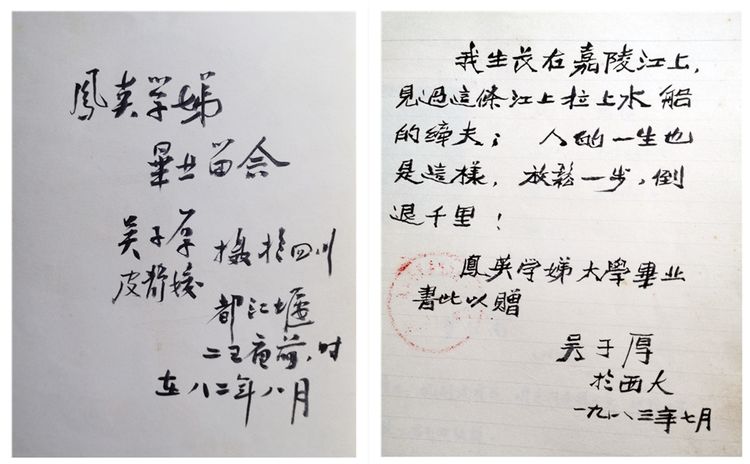 鳳英学娣
畢业留念
吴于厚
皮
摄於四川
都江堰
二王庙前,时
在八二年八月
我生长在嘉陵江上,
見過這條江上拉上水船
的縴夫; 人的一生也
是這樣, 放鬆一步,倒
退千里!
鳳英学娣大學畢业
書此以贈
吴于厚
於西大
一九八三年七月